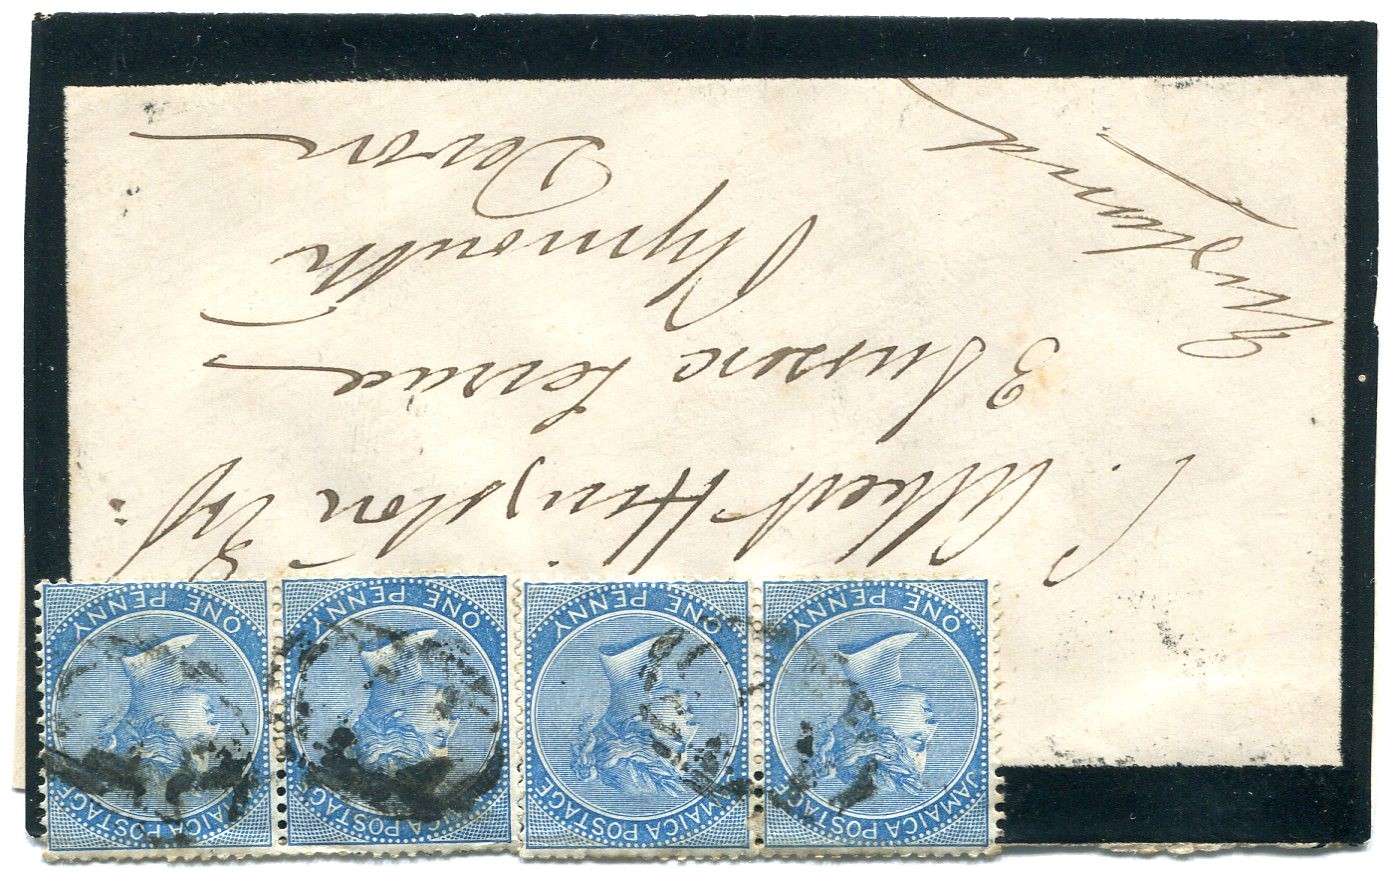 JAMAICA POSTAGE JAMAICA POSTAGE JAMAICA POSTAGE JAMAICA POSTAGE
ONE PENNY ONE PENNY ONE PENNY ONE PENNY
C. Albert Hingston Esq:
3 Sussex Terrace
Plymouth
Devon
England